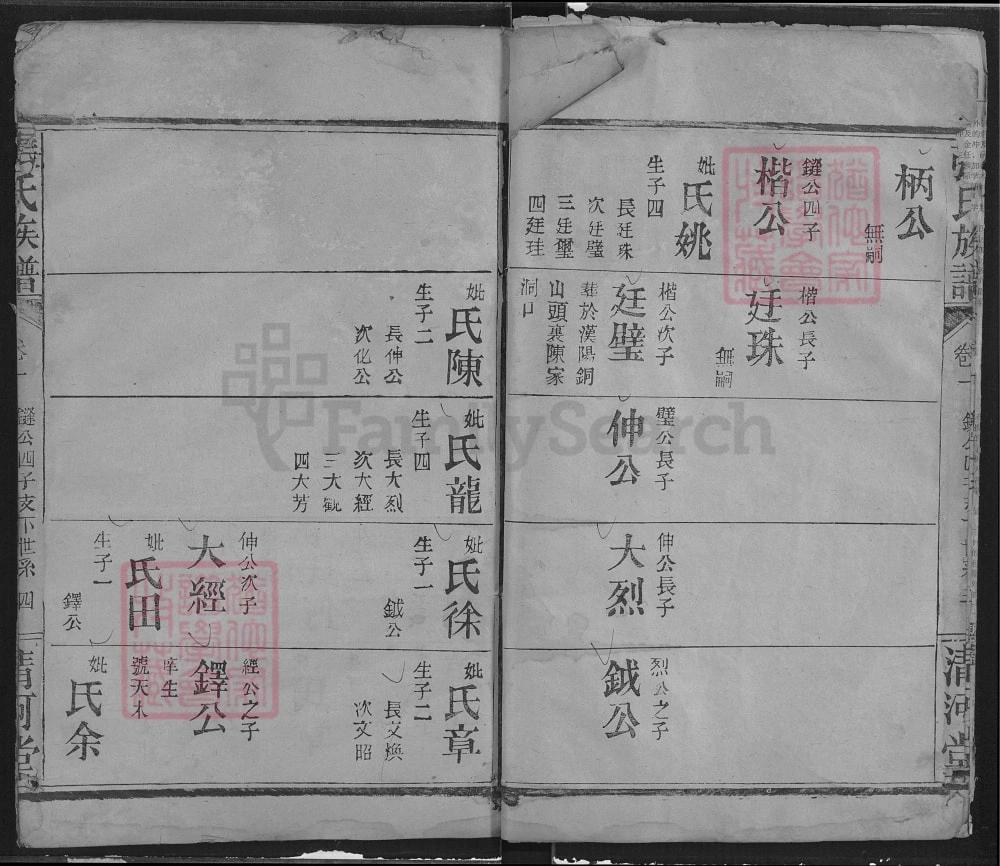 氏族譜
卷一
清河堂
柄公
無嗣
鎹公四子
楷公
妣
氏姚
生子四
長廷珠
次廷璧
三廷璽
四廷珪
楷公長子
廷珠
無嗣
楷公次子
廷璧
葬於漢陽銅
山頭裏陳家
洞口
璧公長子
伸公
伸公長子
大烈
烈公之子
鉞公
妣
氏陳
生子二
長伸公
次化公
妣
氏龍
生子四
長大烈
次大經
三大觀
四大芳
妣
氏徐
生子一
鉞公
伸公次子
大經
妣
氏田
生子一
鐸公
妣
氏章
生子二
長文煥
次文昭
經公之子
鐸公
庠生
號天木
妣
氏余
氏族譜
卷一
公四子支下世系
四
清河堂
FamilySearch